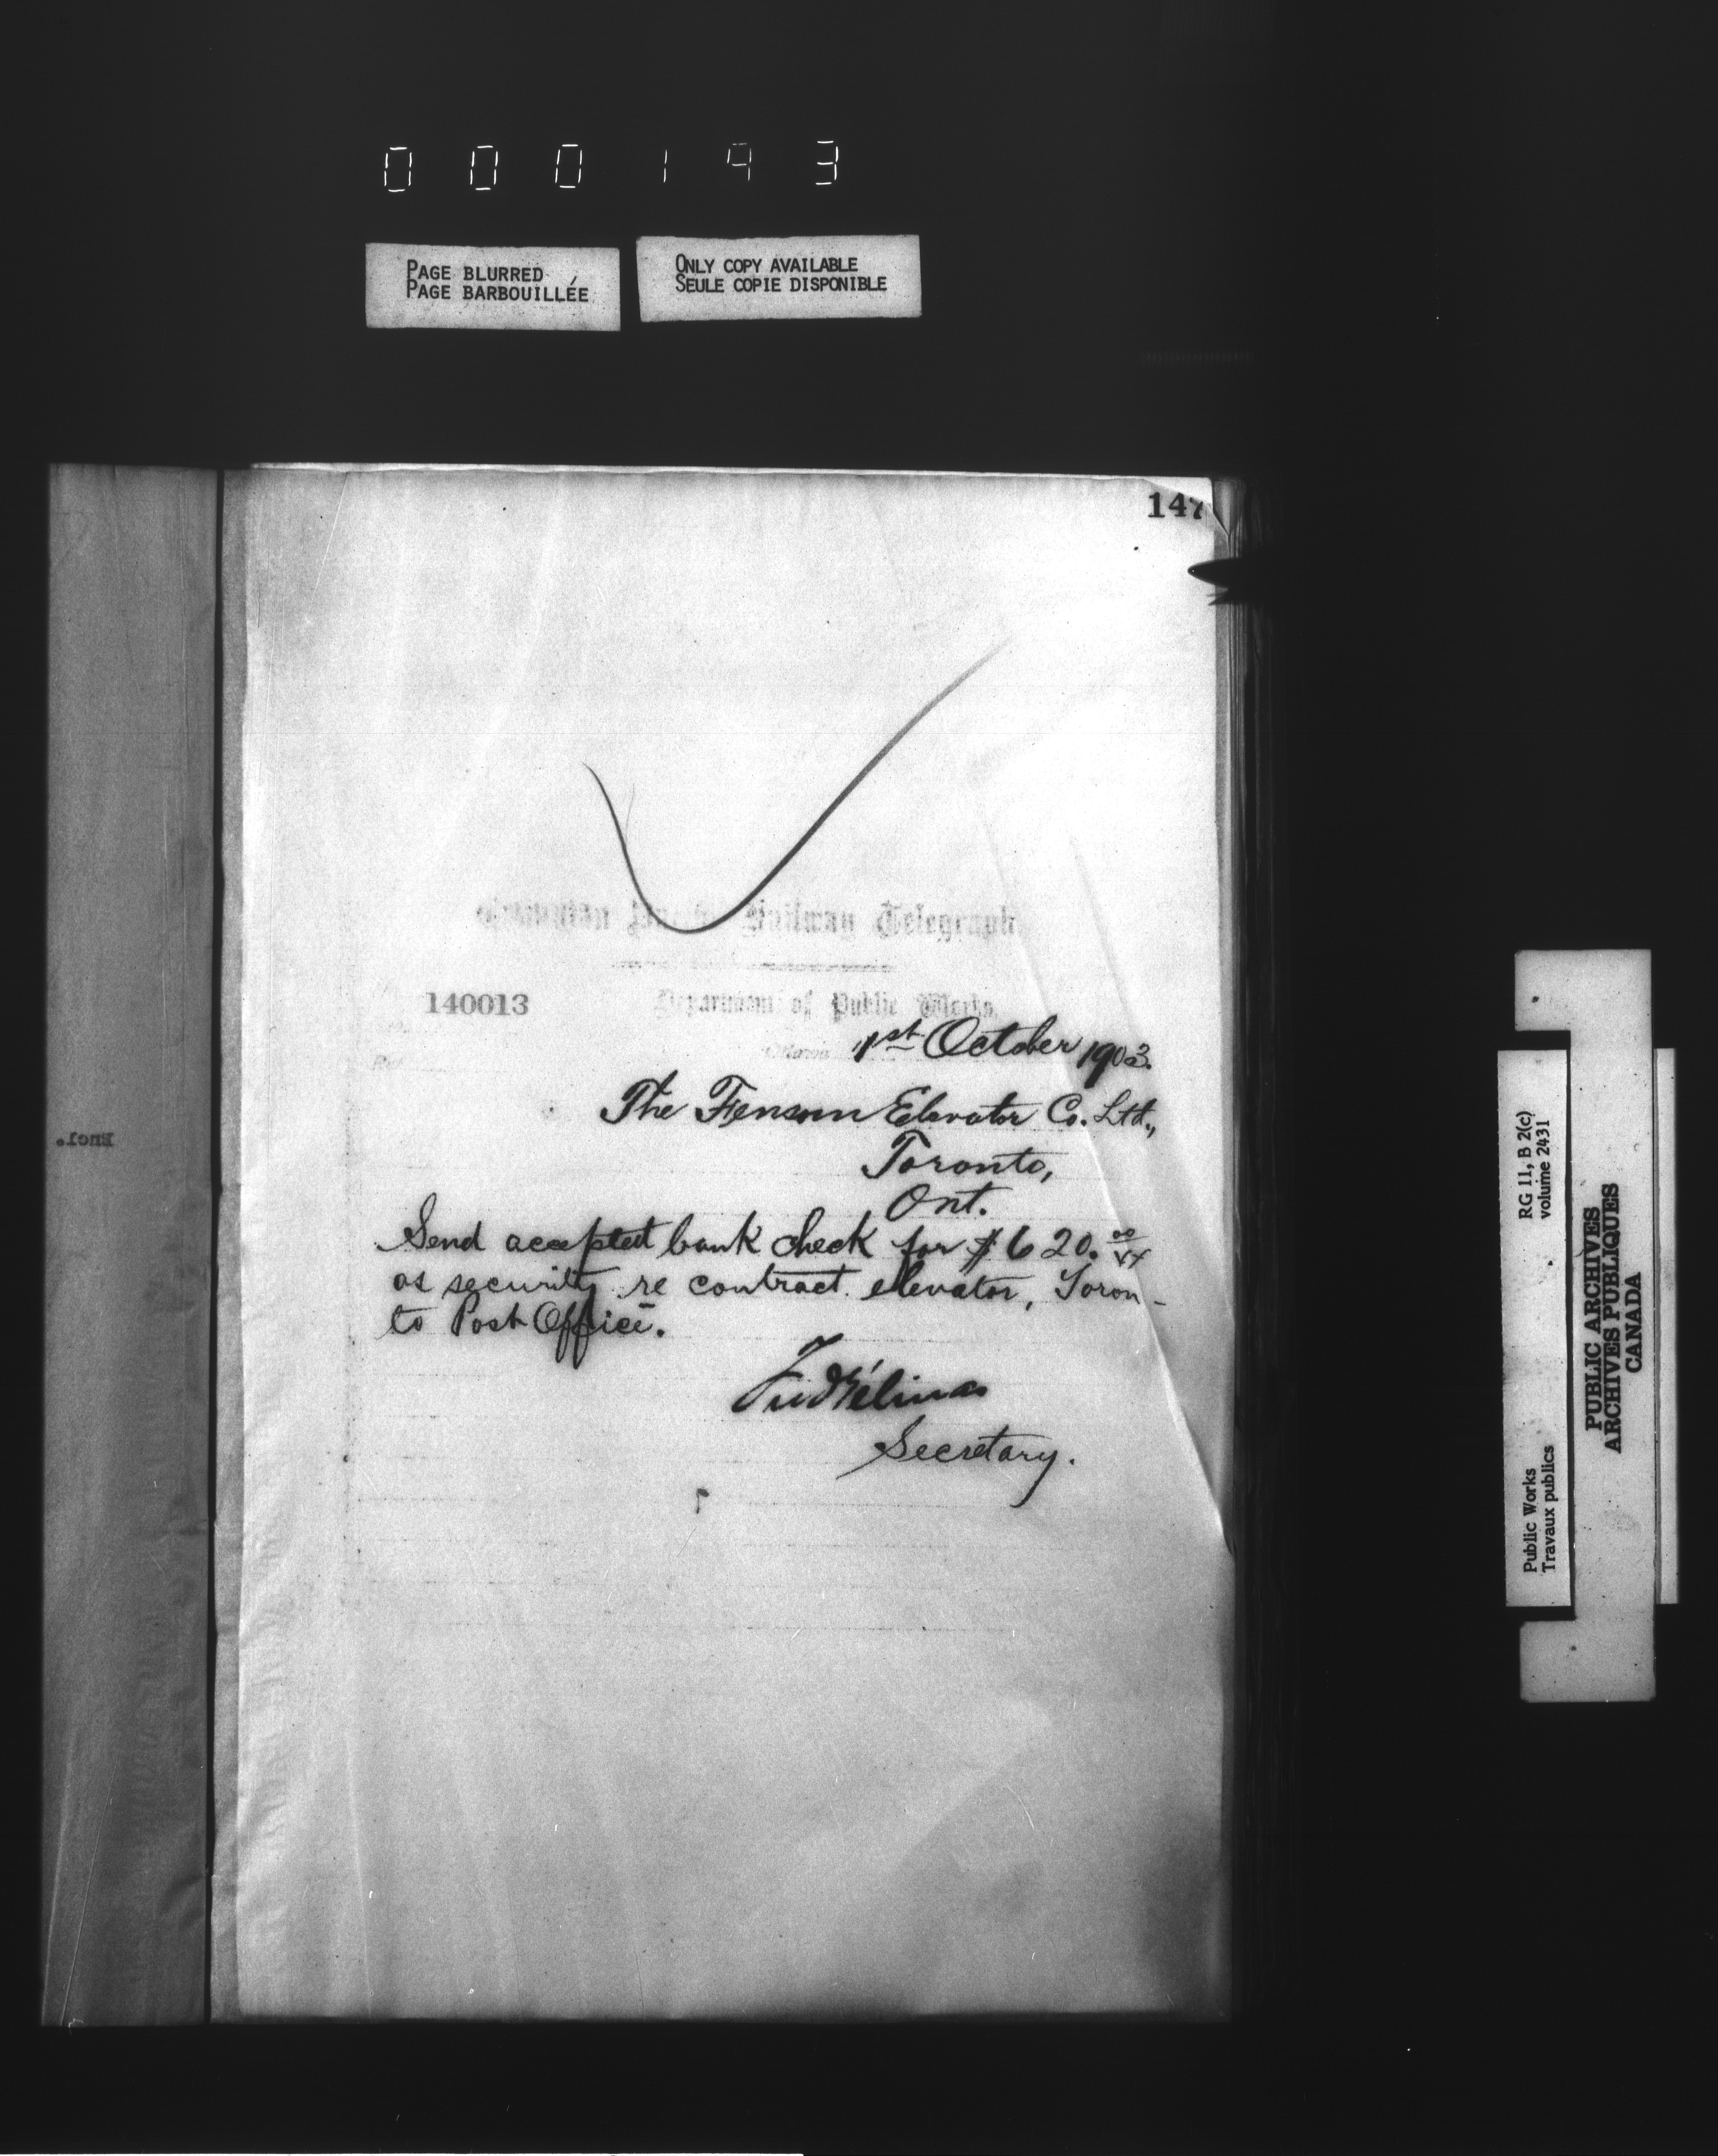 000193
PAGE BLURRED
PAGE BARBOUILLÉE
ONLY COPY AVAILABLE
SEULE COPIE DISPONIBLE
147
Railway Telegraph
140013
Department of Public Works.
Ottawa 1st October 1903.
The Fensom Elevator Co. Ltd.,
Toronto,
Ont.
Send accepted bank check for $620. 00/xx
as security re contract elevator, Toron-
to Post Office.
Fred Gélinas
Secretary.
Encl.
RG 11, B 2(c)
volume 2431
Public Works
Travaux publics
PUBLIC ARCHIVES
ARCHIVES PUBLIQUES
CANADA